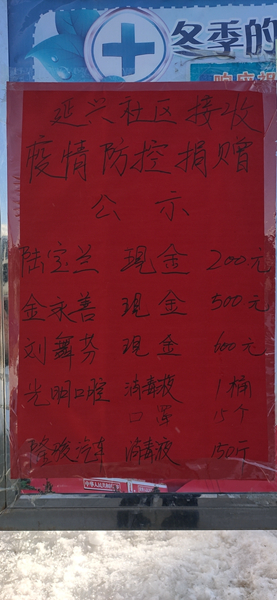 冬季的
延兴社区接收
疫情防控捐赠
公示
陆宝兰 现金 200元
金永善 现金 500元
刘舞芬 现金 600元
光明口腔 消毒液 1桶
口罩 15个
隆骏汽车 消毒液 150斤